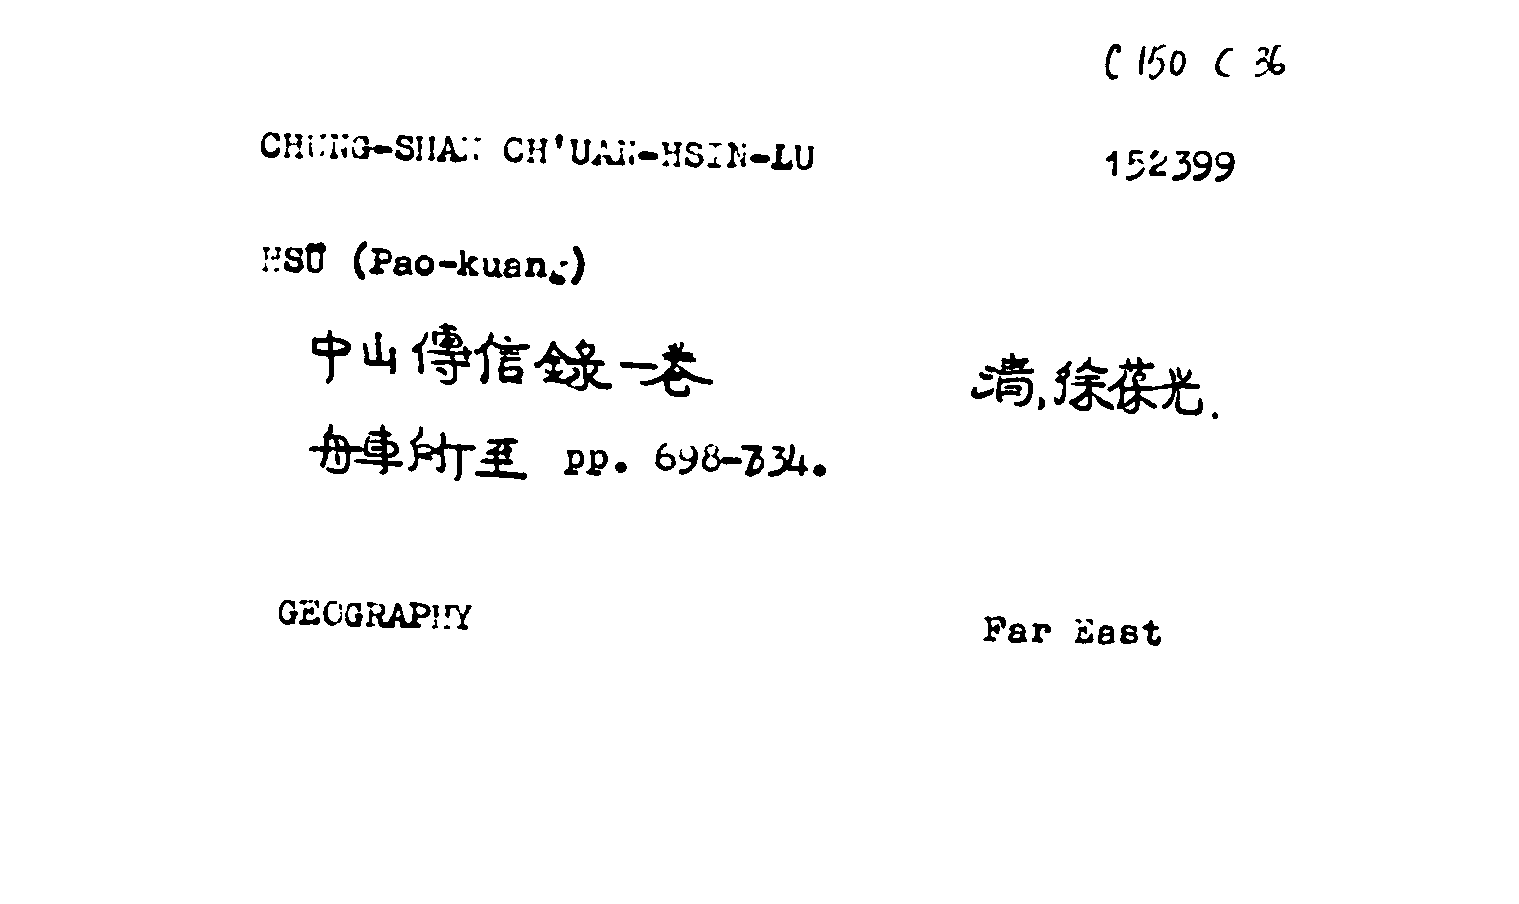 C 150 C 36
CHUNG-SHAN CH'UAN-HSIN-LU
152399
HSÜ (Pao-kuang)
中山傳信錄一卷
清,徐葆光.
舟車所至 pp. 698-734.
GEOGRAPHY
Far East